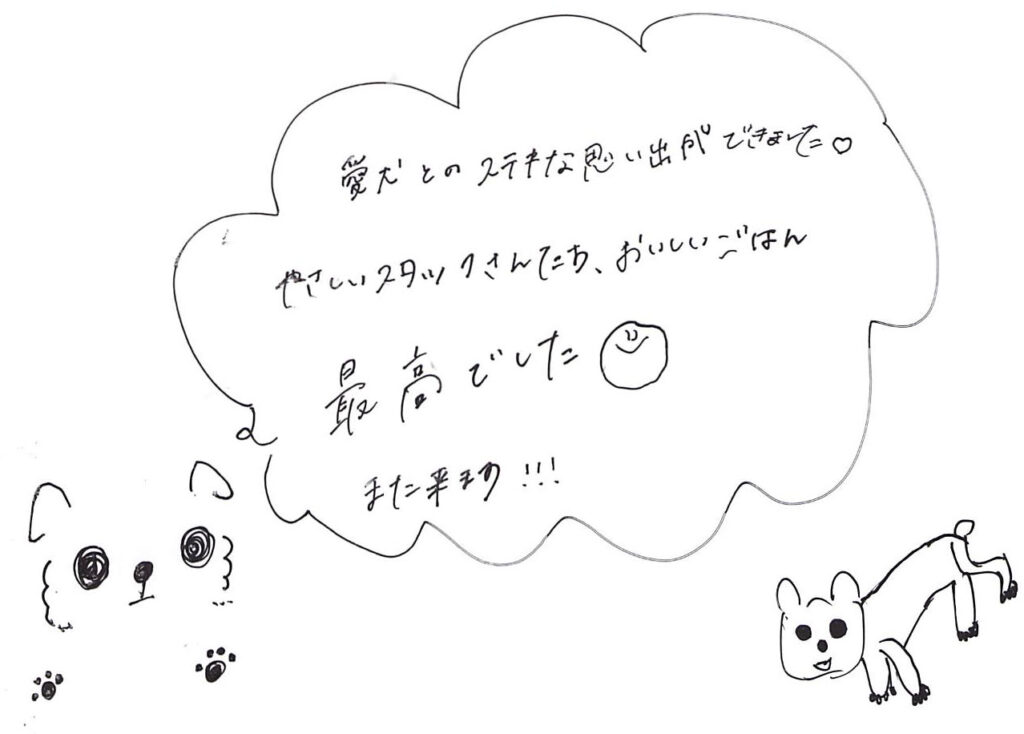 愛犬とのステキな思い出ができました♡
やさしいスタッフさんたち、おいしいごはん
最高でした
また来ます!!!